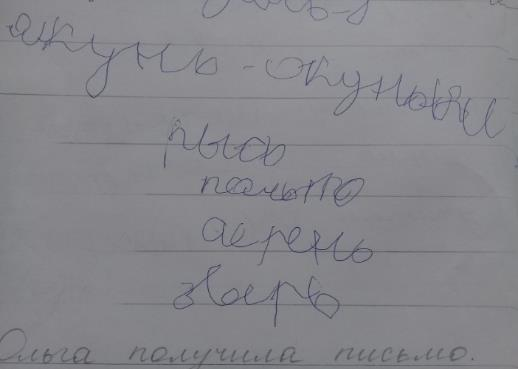 якунь - окуньки
рысь
пальто
аерень
зверь
Ольга получила письмо.